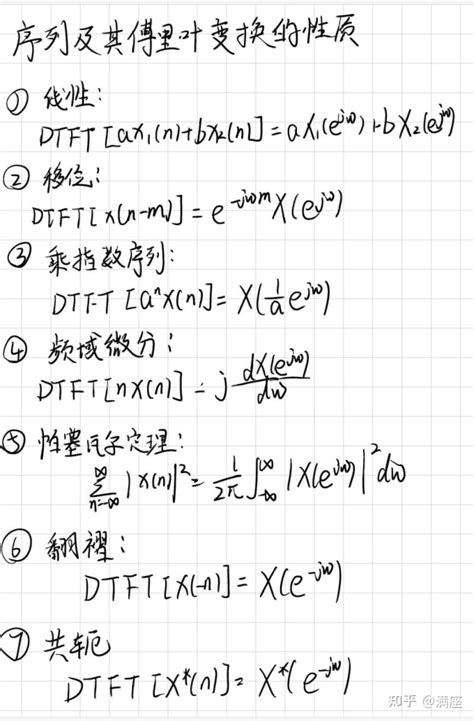 序列及其傅里叶变换的性质
① 线性：
DTFT[ax₁(n)+bx₂(n)]=aX₁(e^{jω})+bX₂(e^{jω})
② 移位：
DTFT[x(n-m)]=e^{-jωm}X(e^{jω})
③ 乘指数序列：
DTFT[aⁿx(n)]=X(\frac{1}{a}e^{jω})
④ 频域微分：
DTFT[nx(n)]=j\frac{dX(e^{jω})}{dω}
⑤ 帕塞瓦尔定理：
\sum_{n=-∞}^{∞}|x(n)|²=\frac{1}{2π}\int_{-∞}^{∞}|X(e^{jω})|²dω
⑥ 翻褶：
DTFT[x(-n)]=X(e^{-jω})
⑦ 共轭
DTFT[x*(n)]=X*(e^{-jω})
知乎 @满座